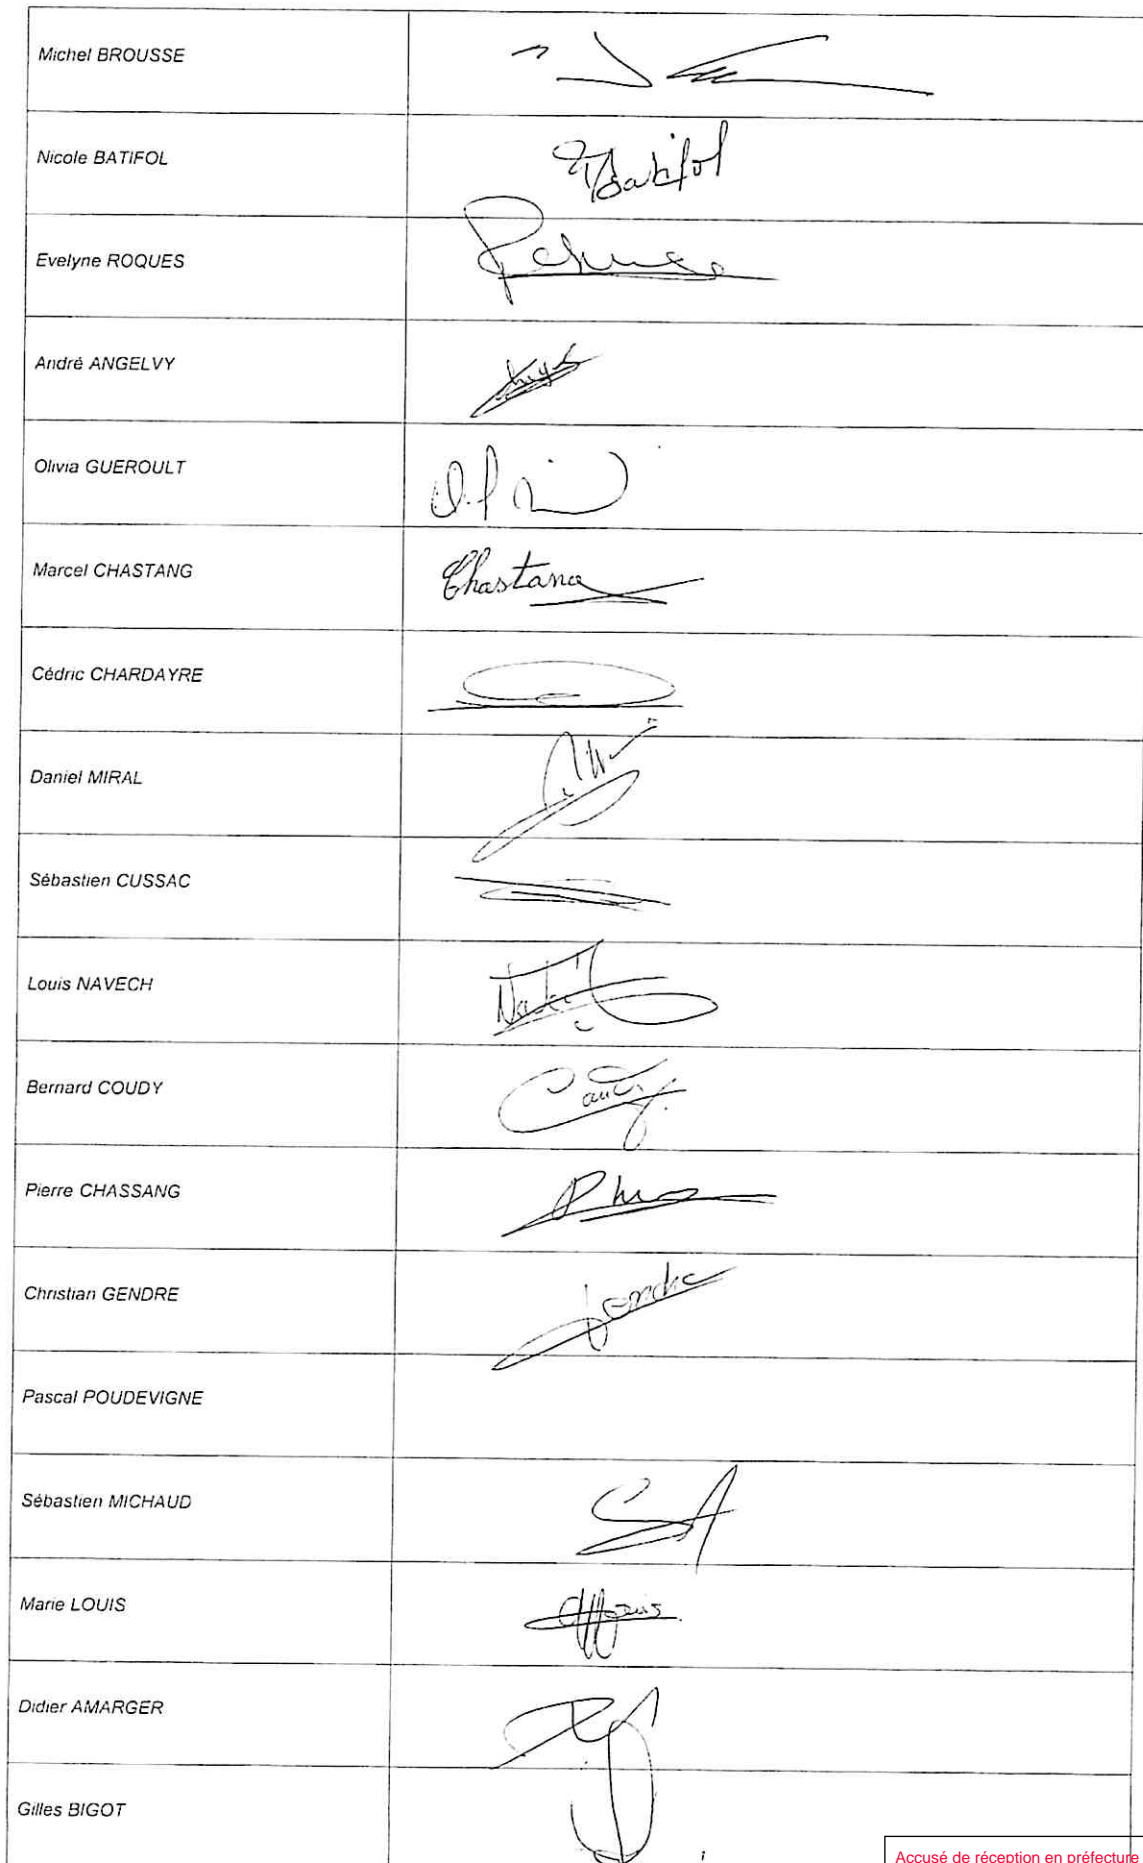 Michel BROUSSE
Nicole BATIFOL
Batifol
Evelyne ROQUES
André ANGELVY
Olivia GUEROULT
Marcel CHASTANG
Chastang
Cédric CHARDAYRE
Daniel MIRAL
Sébastien CUSSAC
Louis NAVECH
Bernard COUDY
Coudy
Pierre CHASSANG
Christian GENDRE
Gendre
Pascal POUDEVIGNE
Sébastien MICHAUD
Marie LOUIS
Didier AMARGER
Gilles BIGOT
Accusé de réception en préfecture